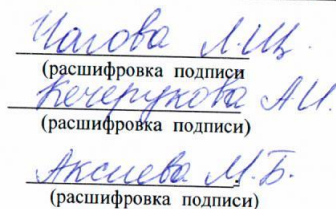 Чагова Л.Щ.
(расшифровка подписи
Кечерукова А.И.
(расшифровка подписи)
Аксиева М.Б.
(расшифровка подписи)